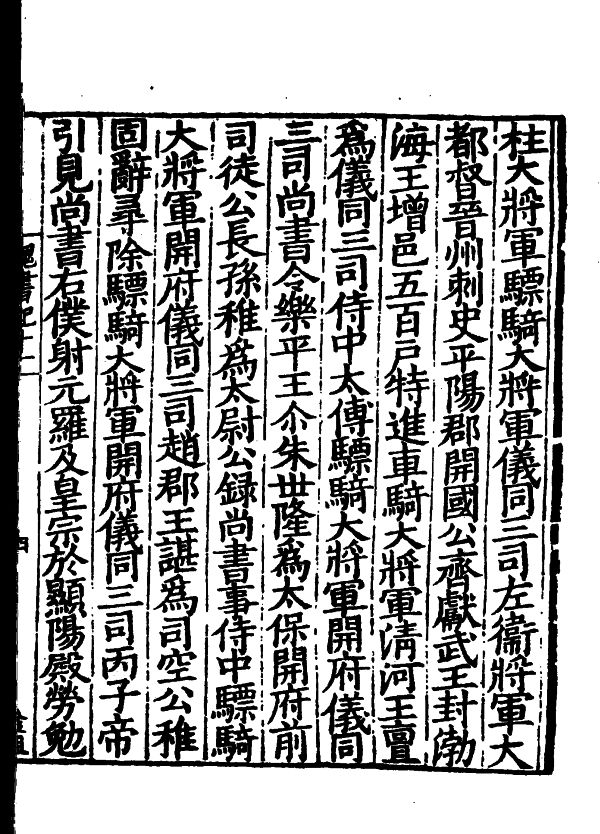 柱大將軍驃騎大將軍儀同三司左衞將軍大
都督晉州刺史平陽郡開國公齊獻武王封勃
海王增邑五百戸特進車騎大將軍淸河王亶
爲儀同三司侍中太傅驃騎大將軍開府儀同
三司尚書令樂平王尒朱世隆爲太保開府前
司徒公長孫稚爲太尉公録尚書事侍中驃騎
大將軍開府儀同三司趙郡王諶爲司空公稚
固辭尋除驃騎大將軍開府儀同三司丙子帝
引見尚書右僕射元羅及皇宗於顯陽殿勞勉